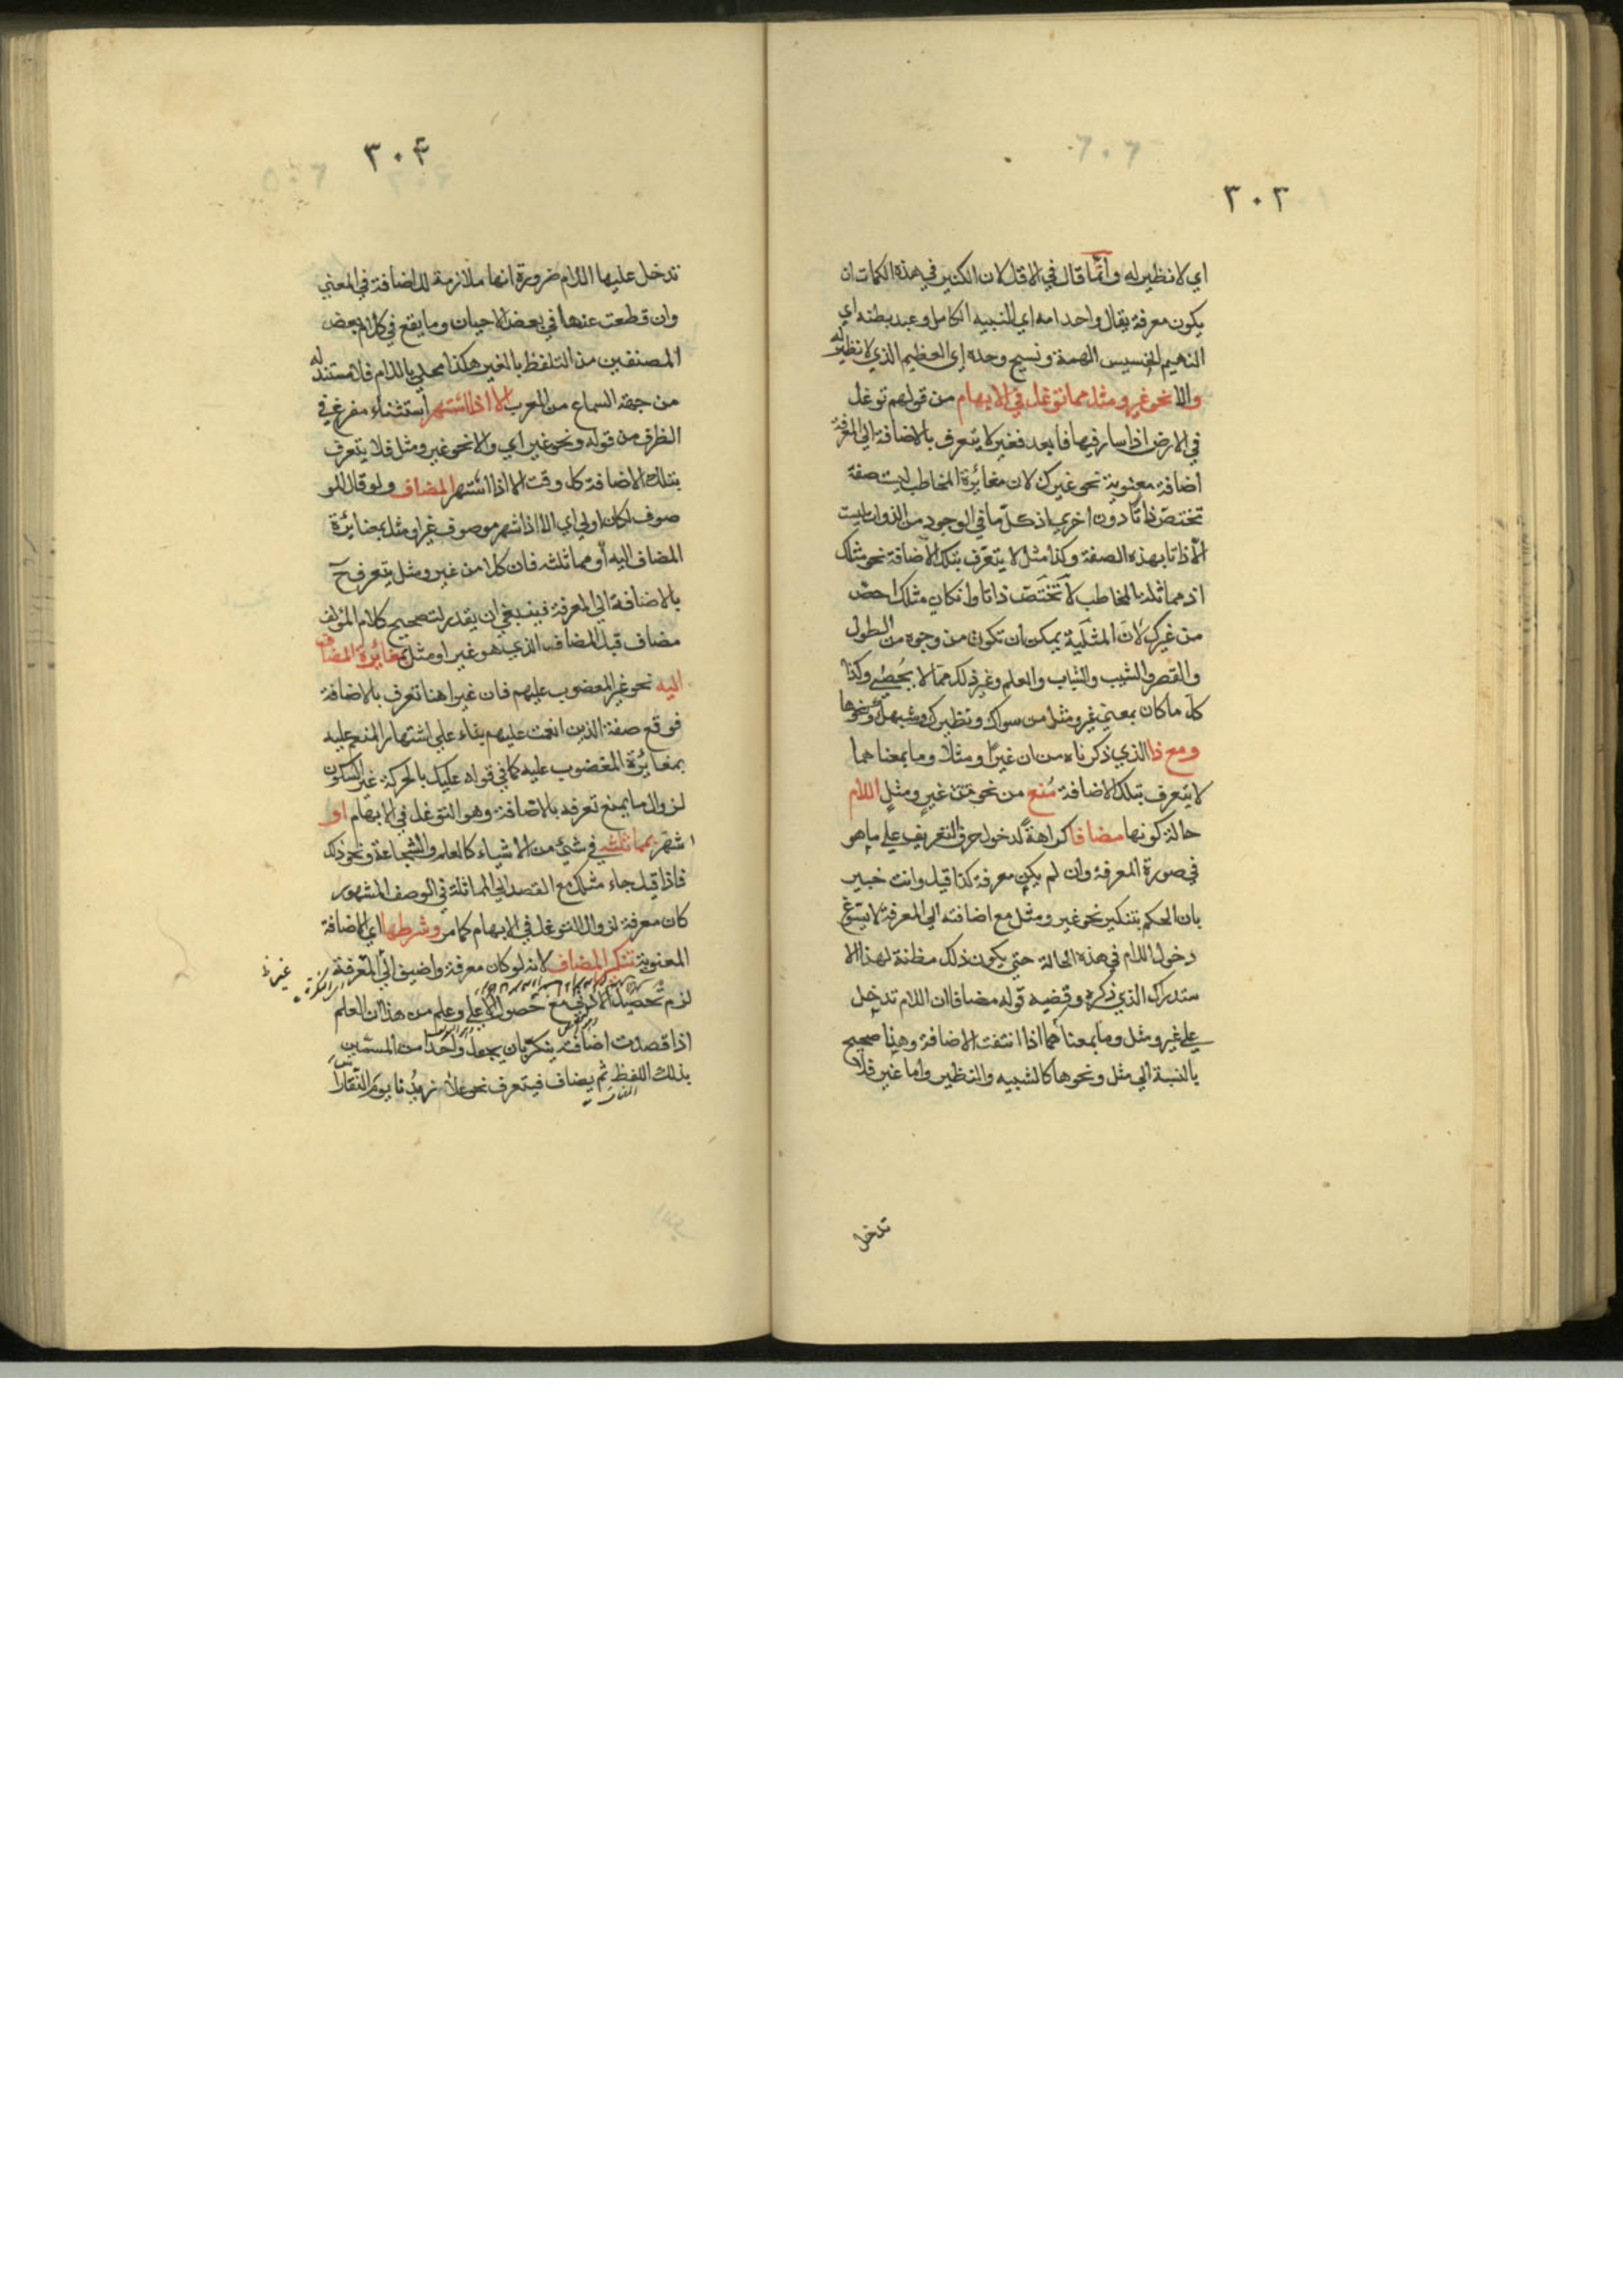 ٣٠٣
اي لا نظير له وانما قال في الاقل لان الكثير في هذه الكلمات ان
يكون معرفة يقال واحد امه اي النبيه الكامل وعبد بطنه اي
النهيم الخسيس الهمة ونسيج وحده اي العظيم الذي لا نظير له
والا نحو غير ومثل مما توغل في الابهام من قولهم توغل
في الارض اذا سار فيها فابعد فغير لا يتعرف بالاضافة الي المعرفة
اضافة معنوية نحو غيرك لان مغائرة المخاطب ليست صفة
تختص ذاتا دون اخري اذ كل ما في الوجود من الذوات ليست
الا ذاتا بهذه الصفة وكذا مثل لا يتعرف بتلك الاضافة نحو مثلك
اذ مماثلة المخاطب لا تختص ذاتا وان كان مثلك اخص
من غيرك لان المثلية يمكن ان تكون من وجوه من الطول
والقصر والشيب والشباب والعلم وغير ذلك مما لا يحصي وكذا
كل ما كان بمعني غير ومثل من سواك ونظيرك وشبهك ونحوها
ومع ذا الذي ذكرناه من ان غيرا ومثلا وما بمعناهما
لا يتعرف بتلك الاضافة منع من نحو غير ومثل اللام
حالة كونها مضافا كراهة لدخول حرف التعريف علي ما هو
في صورة المعرفة وان لم يكن معرفة كذا قيل وانت خبير
بان الحكم بتنكير نحو غير ومثل مع اضافته الي المعرفة لا يسوغ
دخول اللام في هذه الحالة حتي يكون ذلك مظنة لهذا الا
ستدراك الذي ذكره وقضيه قوله مضافا ان اللام تدخل
علي غير ومثل وما بمعناهما اذا انتفت الاضافة وهذا صحيح
بالنسبة الي مثل ونحوها كالشبيه والنظير واما غير فلا
تدخل
٣٠۴
تدخل عليها اللام ضرورة انها ملازمة للاضافة في المعني
وان قطعت عنها في بعض الاحيان وما يقع في كلام بعض
المصنفين من التلفظ بالغير هكذا محلي باللام فلا مستند له
من جهة السماع من العرب الا اذا اشتهر استثناء مفرغ في
الظرف من قوله ونحو غير اي والا نحو غير ومثل فلا يتعرف
بتلك الاضافة كل وقت الا اذا اشتهر المضاف ولو قال المو
صوف لكان اولي اي الا اذا شهر موصوف غير او مثل بمغائرة
المضاف اليه او مماثلته فان كلا من غير ومثل يتعرف ح
بالاضافة الي المعرفة فينبغي ان يقدر لتصحيح كلام المؤلف
مضاف قبل المضاف الذي هو غير او مثل بمغائرة المضاف
اليه نحو غير المغضوب عليهم فان غيرا هنا تعرف بالاضافة
فوقع صفة الذين انعمت عليهم بناء علي اشتهار المنعم عليه
بمغائرة المغضوب عليه كما في قوله عليك بالحركة غير السكون
لزوال ما يمنع تعرفه بالاضافة وهو التوغل في الابهام او
اشتهر بمماثلته في شيئ من الاشياء كالعلم والشجاعة ونحو ذلك
فاذا قيل جاء مثلك مع القصد الي المماثلة في الوصف المشهور
كان معرفة لزوال التوغل في الابهام كما مر وشرطها اي الاضافة
المعنوية تنكير المضاف لانه لو كان معرفة واضيف الي المعرفة
لزم تحصيل الادني مع حصول الاعلي وعلم من هذا ان العلم
اذا قصدت اضافته ينكر بان يجعل واحدا من المسمين
بذلك اللفظ ثم يضاف فيتعرف نحو علا زيدنا يوم النقا را